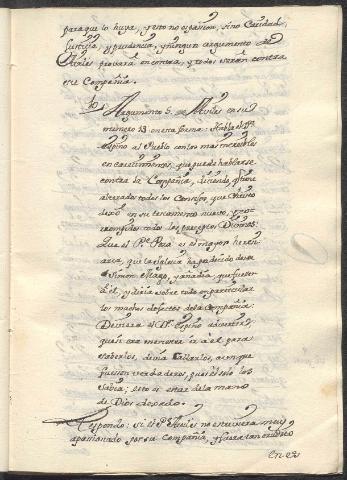 para que lo huya, y esto no es pasion, sino Caridad,
Justicia, y prudencia, y ningun argumento de
Aviles provará en contra, y todos serán contra
su Compañia.
Argumento 5. de Aviles en su
numero 13 en esta forma: Habla el Dr.
Espino al Pueblo con los mas increibles
encarecimientos, que puede hablarse
contra la Compañia, diciendo, que tiene
alterados todos los Consejos, que Christo
dexó en su testamento nuevo, y
rompidos todos los preceptos Divinos:
Que el Pe. Poza es el mayor heresi-
arca, que la Iglesia ha padecido desde
Simon Mago, y añadia, que fuesen
á él, y diria sobre todo en particular
los muchos defectos de la Compañia:
Devriera el Dr. Espino advertir,
que sin otra memoria irá a él para
saberlos, devia callarlos, aunque
fuessen verdaderos, pues él solo los
sabia: esto es estar de la mano
de Dios dexado.
Respondo: si el Pe. Aviles no estuviera muy
apasionado por su Compañia, y fuera tan erudito
en es